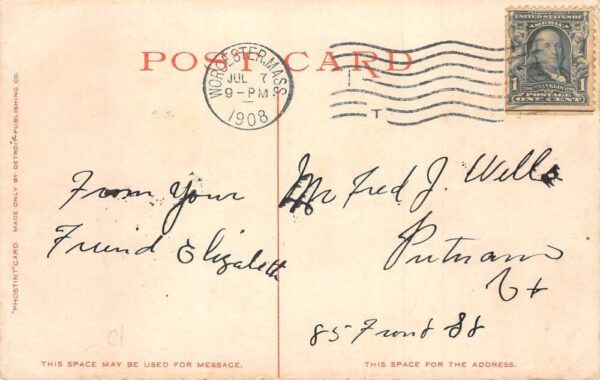 POST CARD
WORCESTER, MASS.
JUL 7
9-PM
1908
T
UNITED STATES
OF AMERICA
1 1
FRANKLIN
ONE CENT
"PHOSTINT" CARD MADE ONLY BY DETROIT PUBLISHING CO.
From Your
Friend Elizabeth
Mr Fred J. Wells
Putnam
Ct
85 Front St
THIS SPACE MAY BE USED FOR MESSAGE.
THIS SPACE FOR THE ADDRESS.